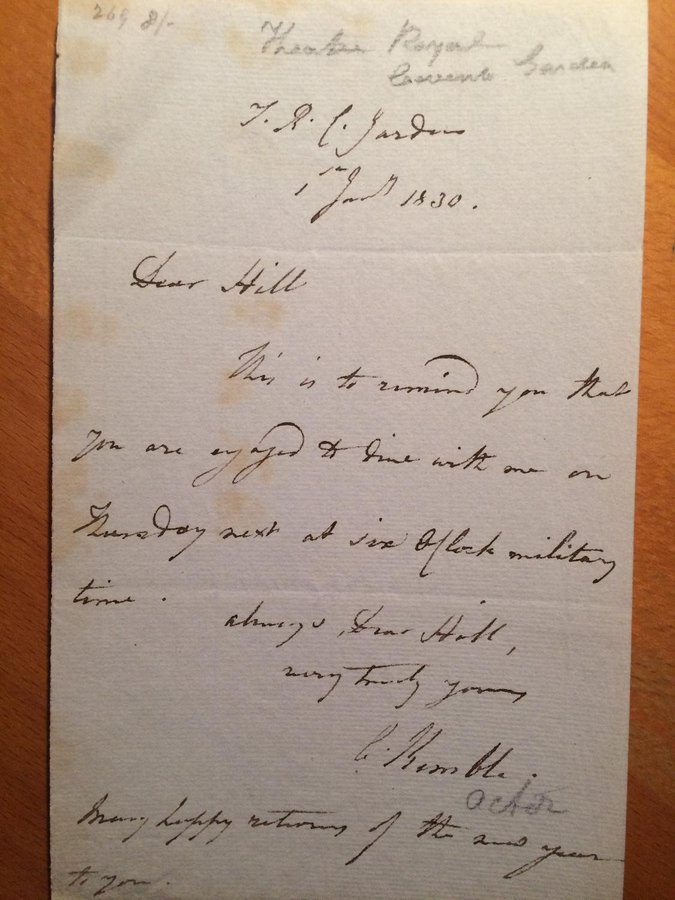 269 8/-
Theatre Royal
Covent Garden
T. R. C. Garden
1st Jany 1830.
Dear Hill
This is to remind you that
you are engaged to dine with me on
Thursday next at six O'Clock military
time.
always, Dear Hill,
very truly yours
C. Kemble.
actor
Many happy returns of the new year
to you.